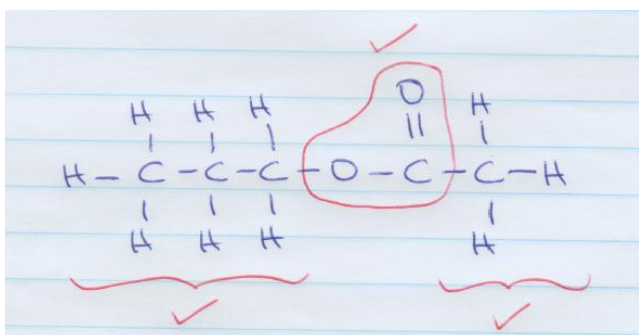 O H
H H H ||
| | | |
H – C – C – C – O – C – C – H
| | | |
H H H H